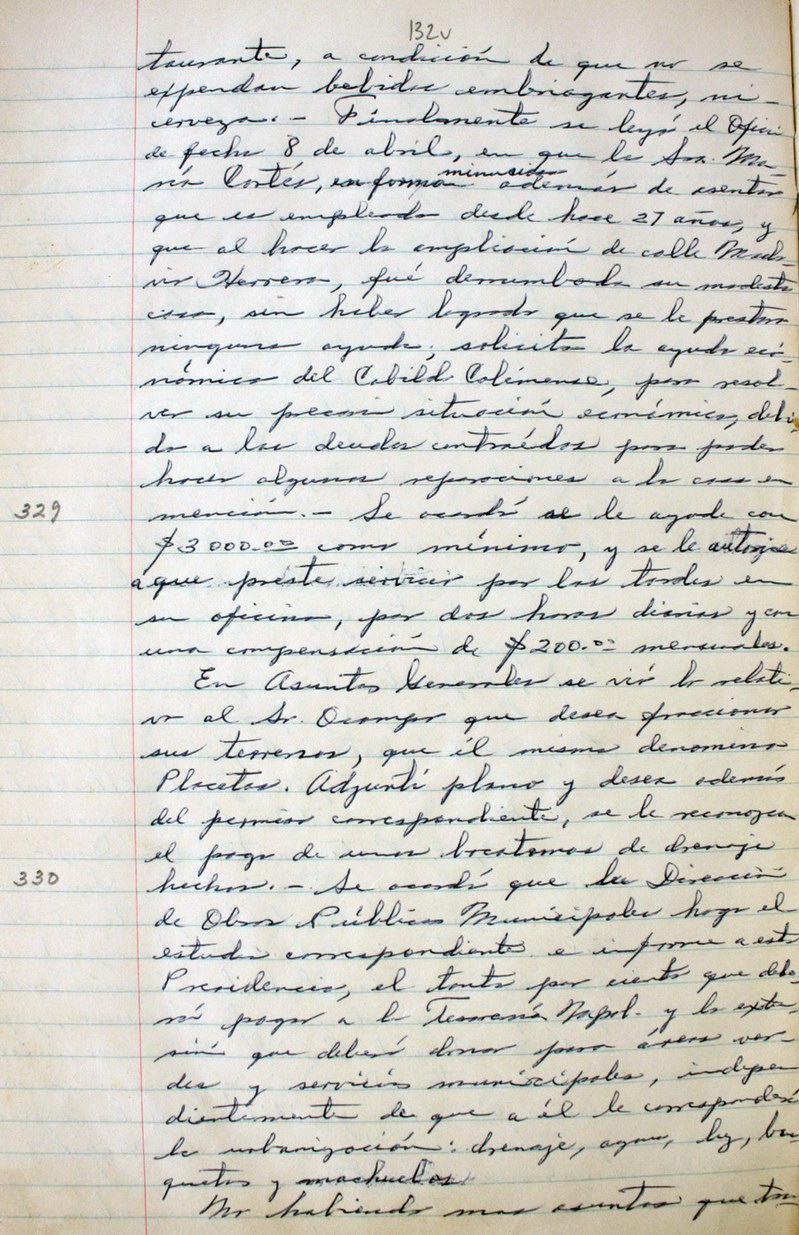 132v
taurante, a condición de que no se
expendan bebidas embriagantes, ni
cerveza.- Finalmente se leyó el Oficio
de fecha 8 de abril, en que la Sra. Ma-
ría Cortés, en forma minusiosa además de asentar
que es empleada desde hace 27 años, y
que al hacer la ampliación de calle Medi-
na Herrera, fué derrumbada su modesta
casa, sin haber logrado que se le prestara
ninguna ayuda; solicita la ayuda eco-
nómica del Cabildo Colimense, para resol-
ver su precaria situación económica, debi-
do a las deudas contraídas para poder
hacer algunas reparaciones a la casa en
329 mención.- Se acordó se le ayude con
$3 000.00 como mínimo, y se le autorice
a que preste servicio por las tardes en
su oficina, por dos horas diarias y con
una compensación de $200.00 mensuales.
En Asuntos Generales se vió lo relati-
vo al Sr. Ocampo que desea fraccionar
sus terrenos, que él mismo denomina
Placetas. Adjuntó plano y desea además
del permiso correspondiente, se le reconozca
el pago de unas bocatomas de drenaje
330 hechas.- Se acordó que la Dirección
de Obras Públicas Municipales haga el
estudio correspondiente e informe a esta
Presidencia, el tanto por ciento que debe-
rá pagar a la Tesorería Mpal. y la exten-
sión que deberá donar para áreas ver-
des y servicios municipales, indepen
dientemente de que a él le corresponderá
la urbanización: drenaje, agua, luz, ban-
quetas y machuelos.
No habiendo mas asuntos que tra-